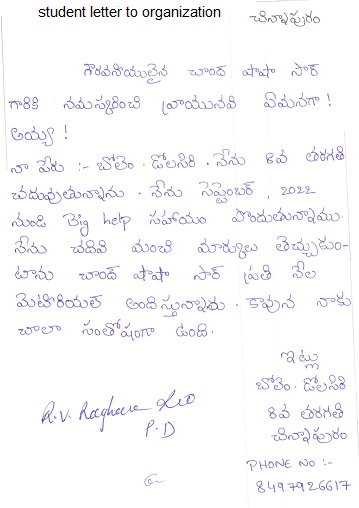 student letter to organization
చిన్నాపురం
గౌరవనీయులైన చాంద్ షాషా సార్
గారికి నమస్కరించి వ్రాయునవి ఏమనగా!
అయ్యా!
నా పేరు :- బోలెం. డోలసిరి. నేను 8వ తరగతి
చదువుతున్నాను. నేను సెప్టెంబర్, 2022
నుండి Big help సహాయం పొందుతున్నాము.
నేను చదివి మంచి మార్కులు తెచ్చుకుం-
టాను చాంద్ షాషా సార్ ప్రతి నెల
మెటీరియల్ అందిస్తున్నారు. కావున నాకు
చాలా సంతోషంగా ఉంది.
ఇట్లు
బోలెం. డోలసిరి
8వ తరగతి
చిన్నాపురం
PHONE NO :-
8497926617
R.V. Raghava Rao
P.D